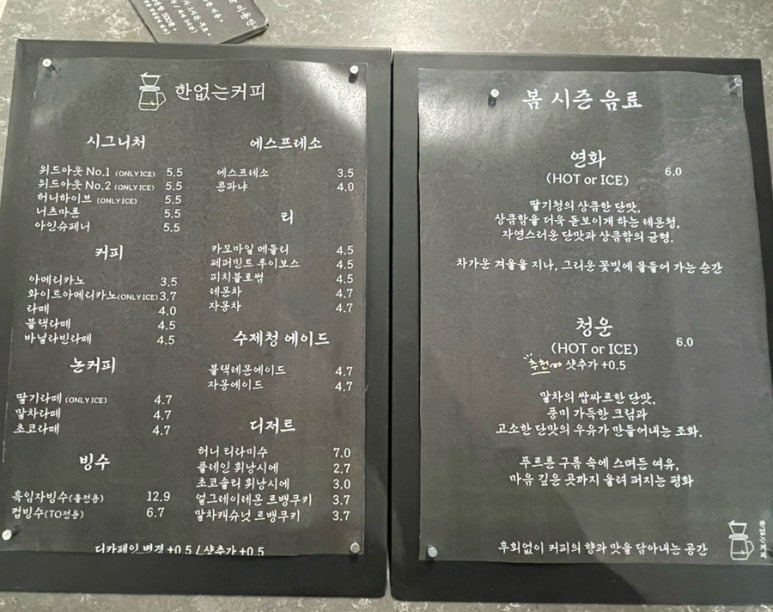 한없는커피
시그니처
위드아웃 No.1 (ONLY ICE) 5.5
위드아웃 No.2 (ONLY ICE) 5.5
허니하이브 (ONLY ICE) 5.5
너츠마론 5.5
아인슈페너 5.5
커피
아메리카노 3.5
화이트아메리카노(ONLY ICE) 3.7
라떼 4.0
블랙라떼 4.5
바닐라빈라떼 4.5
논커피
딸기라떼 (ONLY ICE) 4.7
말차라떼 4.7
초코라떼 4.7
빙수
흑임자빙수(홀전용) 12.9
컵빙수(TO전용) 6.7
에스프레소
에스프레소 3.5
콘파냐 4.0
티
카모마일 메들리 4.5
페퍼민트 루이보스 4.5
피치블로썸 4.5
레몬차 4.7
자몽차 4.7
수제청 에이드
블랙레몬에이드 4.7
자몽에이드 4.7
디저트
허니 티라미수 7.0
플레인 휘낭시에 2.7
초코솔티 휘낭시에 3.0
얼그레이레몬 르뱅쿠키 3.7
말차캐슈넛 르뱅쿠키 3.7
디카페인 변경 +0.5 / 샷추가 +0.5
봄 시즌 음료
연화 6.0
(HOT or ICE)
딸기청의 상큼한 단맛,
상큼함을 더욱 돋보이게 하는 레몬청,
자연스러운 단맛과 상큼함의 균형.
차가운 겨울을 지나, 그리운 꽃빛에 물들어 가는 순간
청운 6.0
(HOT or ICE)
추천 샷추가 +0.5
말차의 쌉싸르한 단맛,
풍미 가득한 크림과
고소한 단맛의 우유가 만들어내는 조화.
푸르른 구름 속에 스며든 여유,
마음 깊은 곳까지 울려 퍼지는 평화
후회없이 커피의 향과 맛을 담아내는 공간
한없는커피